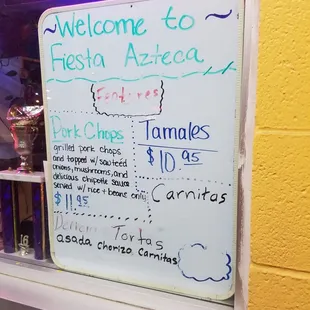 ~Welcome to~
Fiesta Azteca
Features
Pork Chops
grilled pork chops
and topped w/ sauteéd
onions, mushrooms, and
delicious chipotle sauce
served w/ rice + beans only
$11.95
Tamales
$10.95
Carnitas
Tortas
asada chorizo Carnitas
16